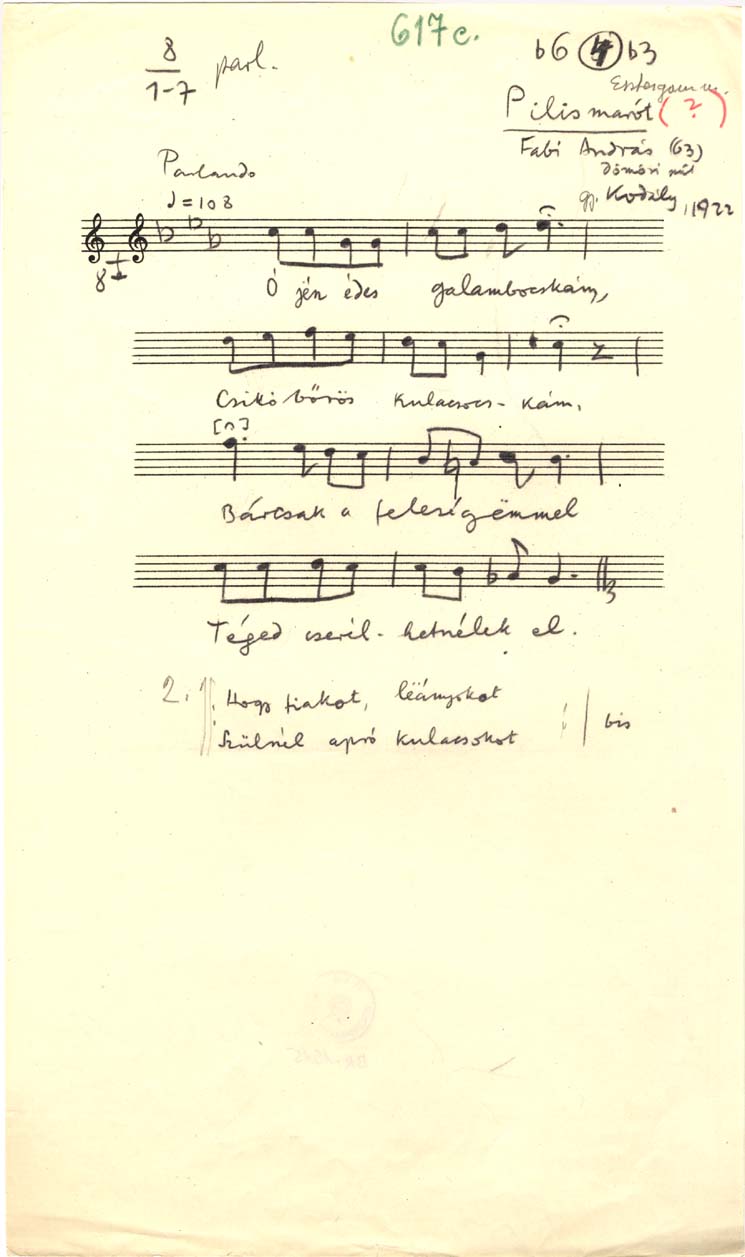 617c.
8 parl.
1-7
b6 4 b3
Esztergom m.
Pilismarót (?)
Fabi András (63)
Dömösi szül
gy. Kodály, 1922
Parlando
♩=108
8
Ó jén édes galambocskám,
Csikó bőrös kulacsocs-kám,
Bárcsak a feleségëmmel
3
Téged cseril-hetnélek el.
2. Hogy fiakot, lëányokot
Szülnél apró kulacsokot bis